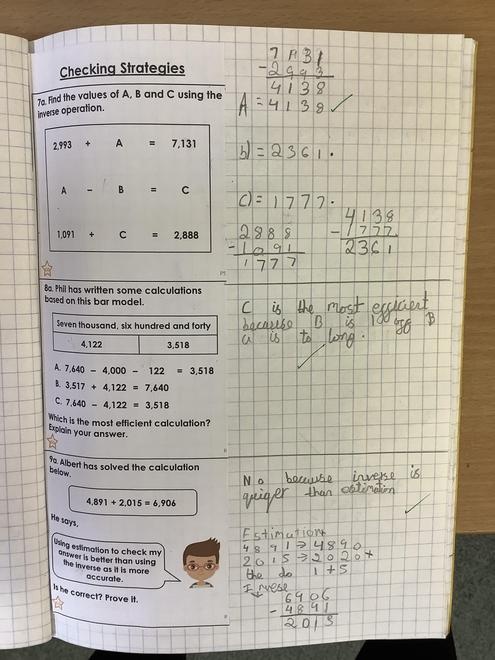 Checking Strategies
7a. Find the values of A, B and C using the
inverse operation.
2,993 + A = 7,131
A - B = C
1,091 + C = 2,888
8a. Phil has written some calculations
based on this bar model.
Seven thousand, six hundred and forty
4,122 3,518
A. 7,640 - 4,000 - 122 = 3,518
B. 3,517 + 4,122 = 7,640
C. 7,640 - 4,122 = 3,518
Which is the most efficient calculation?
Explain your answer.
9a. Albert has solved the calculation
below.
4,891 + 2,015 = 6,906
He says,
Using estimation to check my
answer is better than using
the inverse as it is more
accurate.
Is he correct? Prove it.
- 2993
4138
A = 4138
b) = 2361.
c) = 1777.
2888
- 1091
1777
4138
- 1777
2361
C is the most efficient
because B is 1 off
a is to long.
No because inverse is
than estimation
Estimation
4891 → 4890
2015 → 2020 +
the do 1 + 5
6906
- 4891
2015